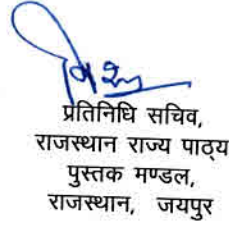 प्रतिनिधि सचिव,
राजस्थान राज्य पाठ्य
पुस्तक मण्डल,
राजस्थान, जयपुर